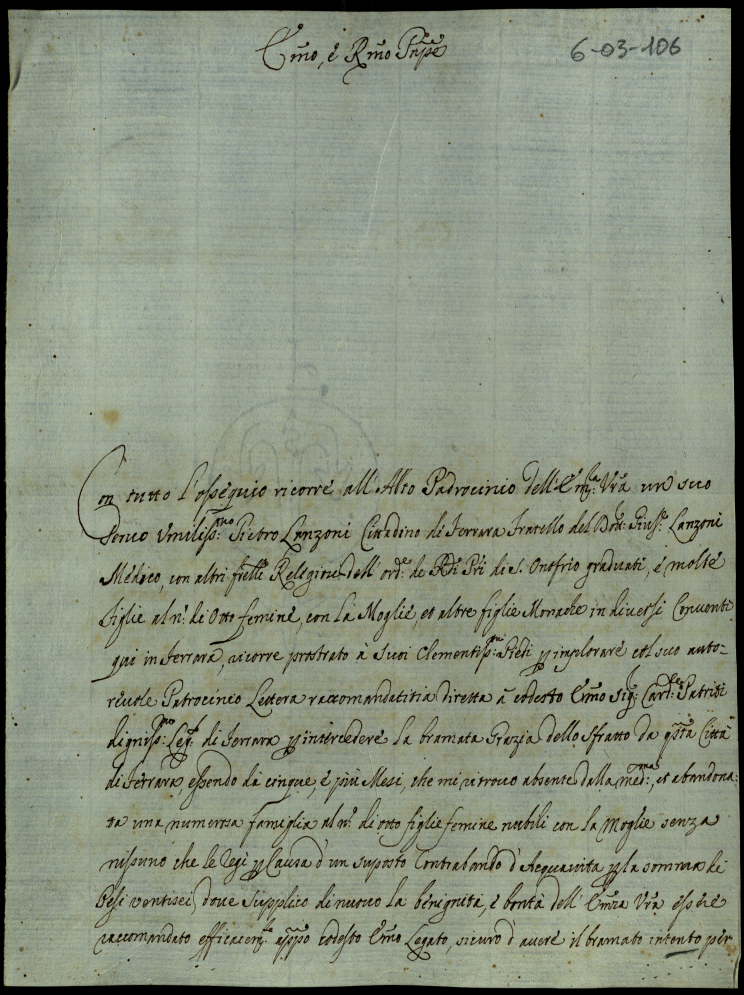 Emo, è Rmo Pnpe
6-03-106
Con tutto l'ossequio ricorre all'Alto Padrocinio dell'Emza: Vra un suo
Seruo Vmiliss:mo Pietro Lanzoni Cittadino di Ferrara Fratello del Dotr: Gius:e Lanzoni
Medico, con altri frelli Religiosi dell'ord: de RRdi PPri di S. Onofrio graduati, è molte
figlie al n:o di Otto femine, con la Moglie, et altre figlie Monache in diuersi Conuenti
qui in Ferrara, ricorre prostrato à suoi Clementiss:mi Piedi p implorare col suo auto-
reuole Patrocinio Lettera raccomandatitia diretta à codesto Emo Sig:r Card:le Patritii
digniss:mo Leg:to di Ferrara p intercedere la bramata Grazia dello sfratto da qsta Città
di Ferrara, essendo da cinque, è più Mesi, che mi ritrouo absente dalla med:ma, et abandona:
ta una numerosa famiglia al n:o di otto figlie femine nubili con la Moglie senza
nissuno che le regi p Causa d'un suposto Contrabando d'Acquauita p la somma di
Pesi uentisei, doue supplico di nuouo la benignità, è bontà dell'Emza Vra essere
raccomandato efficacem:te appo codesto Emo Legato, sicuro d'auere il bramato intento per